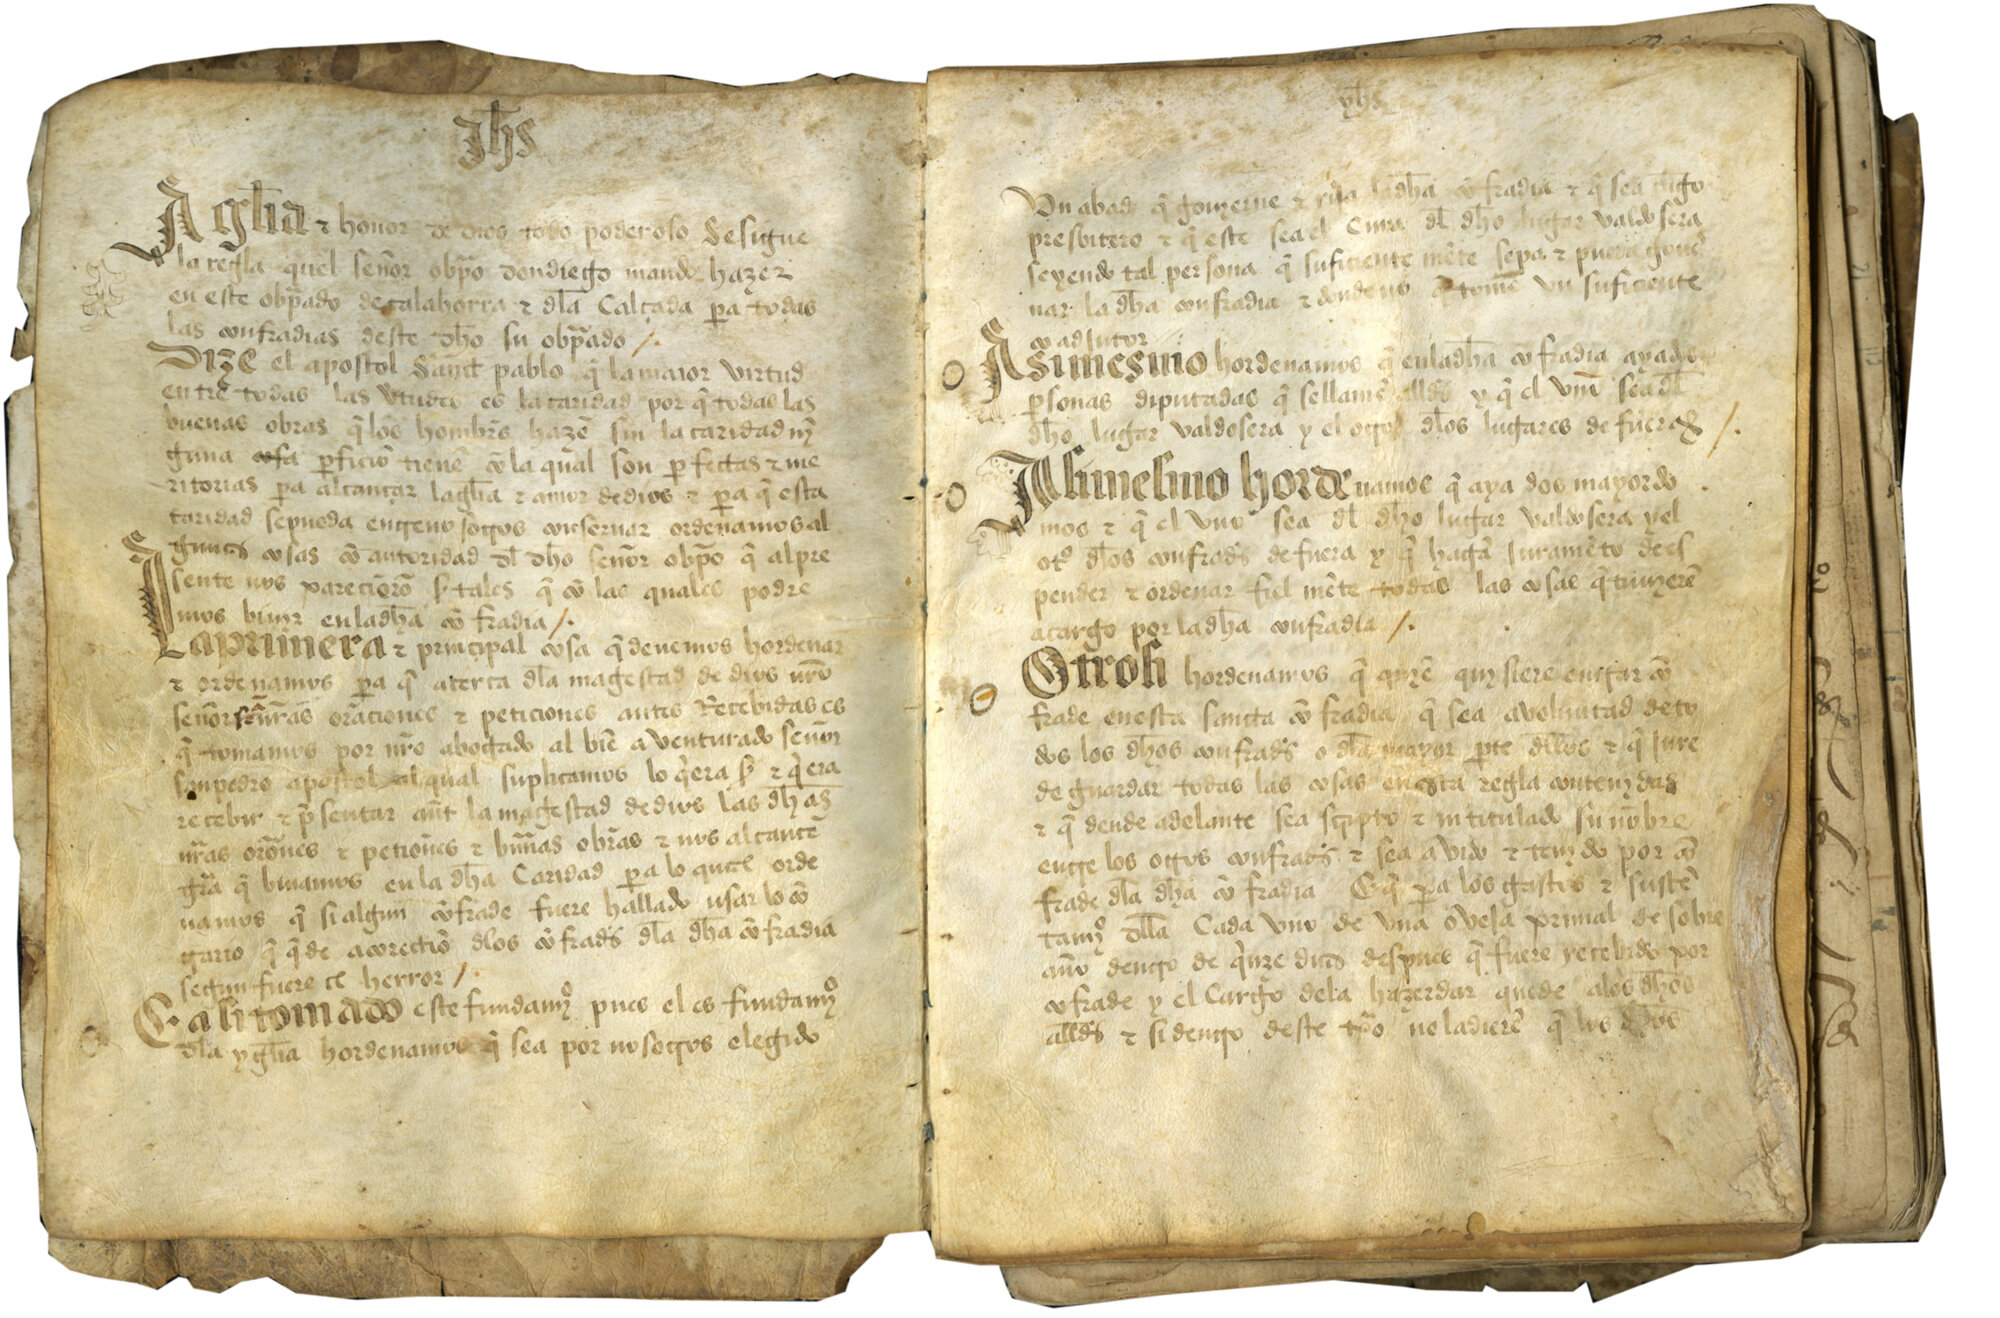 Jhs
A gl̃ia τ honor de dios todo poderoso Sesigue
la regla quel señor obp̃o dondiego mando hazer
en este obp̃ado decalahorra τ dl̃a Calçada p̃a todas
las confradias deste dh̃o su obp̃ado /.
Dize el apostol Sant pablo q̃ lamaior virtud
entre todas las ṽtudes es lacaridad por q̃ todas las
buenas obras q̃ los hombrẽs hazẽ sin lacaridad nỹ
guna cosa p̃ficiõ tienẽ cõ la qual son perfectas τ me
ritorias p̃a alcançar lagl̃ia τ amor dedios τ p̃a q̃ esta
caridad sepueda entrenosotros conservar ordenamos al
gunas cosas cõ autoridad dl̃ dh̃o señor obp̃o q̃ alpre
sente nos parecierõ tales q̃ cõ las quales podre
mos biuir enladh̃a cõfradia /.
Laprimera τ principal cosa q̃ devemos hordenar
τ ordenamos p̃a q̃ acerca dl̃a magestad dedios nr̃o
señor nr̃as oraciones τ peticiones antes Recebidas es
q̃ tomamos por nr̃o abogado al biẽ aventurado señor
sanpedro apostol alqual suplicamos lo q̃era τ q̃era
recebir τ p̃sentar ant̃ la magestad dedios las dh̃as
nr̃as orõnes τ petiõnes τ buenas obras τ nos alcançe
gr̃a q̃ bivamos en la dh̃a Caridad p̃a lo qual orde
namos q̃ si algun cõfrade fuere hallado usar lo cõ
trario q̃ q̃de acorrectiõ dl̃os cõfrad̃s dl̃a dh̃a cõfradia
segun fuere el herror /.
E asi tomado este fundamº pues el es fundamº
dl̃a ygl̃ia hordenamos q̃ sea por nosotros elegido
yhs
Un abad q̃ govierne τ rija ladh̃a cõfradia τ q̃ sea clerigo
presbitero τ q̃ este sea el Cura dl̃ dh̃o lugar valdosera
seyendo tal persona q̃ suficiente mẽte sepa τ pueda gover
nar la dh̃a confradia τ dondeno q̃ tome un suficiente
coadjutor
Asimesmo hordenamos q̃ enladh̃a cõfradia aya dos
p̃sonas diputadas q̃ sellamẽ alld̃s y q̃ el uno sea dl̃
dh̃o lugar valdosera y el otro dl̃os lugares de fuera /.
Asimesmo horde namos q̃ aya dos mayordo
mos τ q̃ el uno sea dl̃ dh̃o lugar valdosera yel
otº dl̃os confrad̃s defuera y q̃ hagã Juramẽto dees
pender τ ordenar fiel mẽte todas las cosas q̃tuvierẽ
acargo por ladh̃a confradia /.
Otrosi hordenamos q̃ quiẽ quisiere entrar cõ
frade enesta sancta cõfradia q̃ sea avoluntad deto
dos los dh̃os confrad̃s o dl̃a mayor p̃te dellos τ q̃ Jure
de guardar todas las cosas enesta regla contenidas
τ q̃ dende adelante sea scripto τ intitulado sunõbre
entre los otros confrad̃s τ sea avido τ tenido por cõ
frade dl̃a dh̃a cõfradia E q̃ p̃a los gastos τ sustẽ
tamº dlla Cada uno de una oveja primal de sobre
año dentro de q̃nze dias despues q̃ fuere recebido por
cofrade y el Cargo dela hazerdar quede alos dh̃os
alld̃s τ si dentro deste tp̃o noladierẽ q̃ los dh̃os